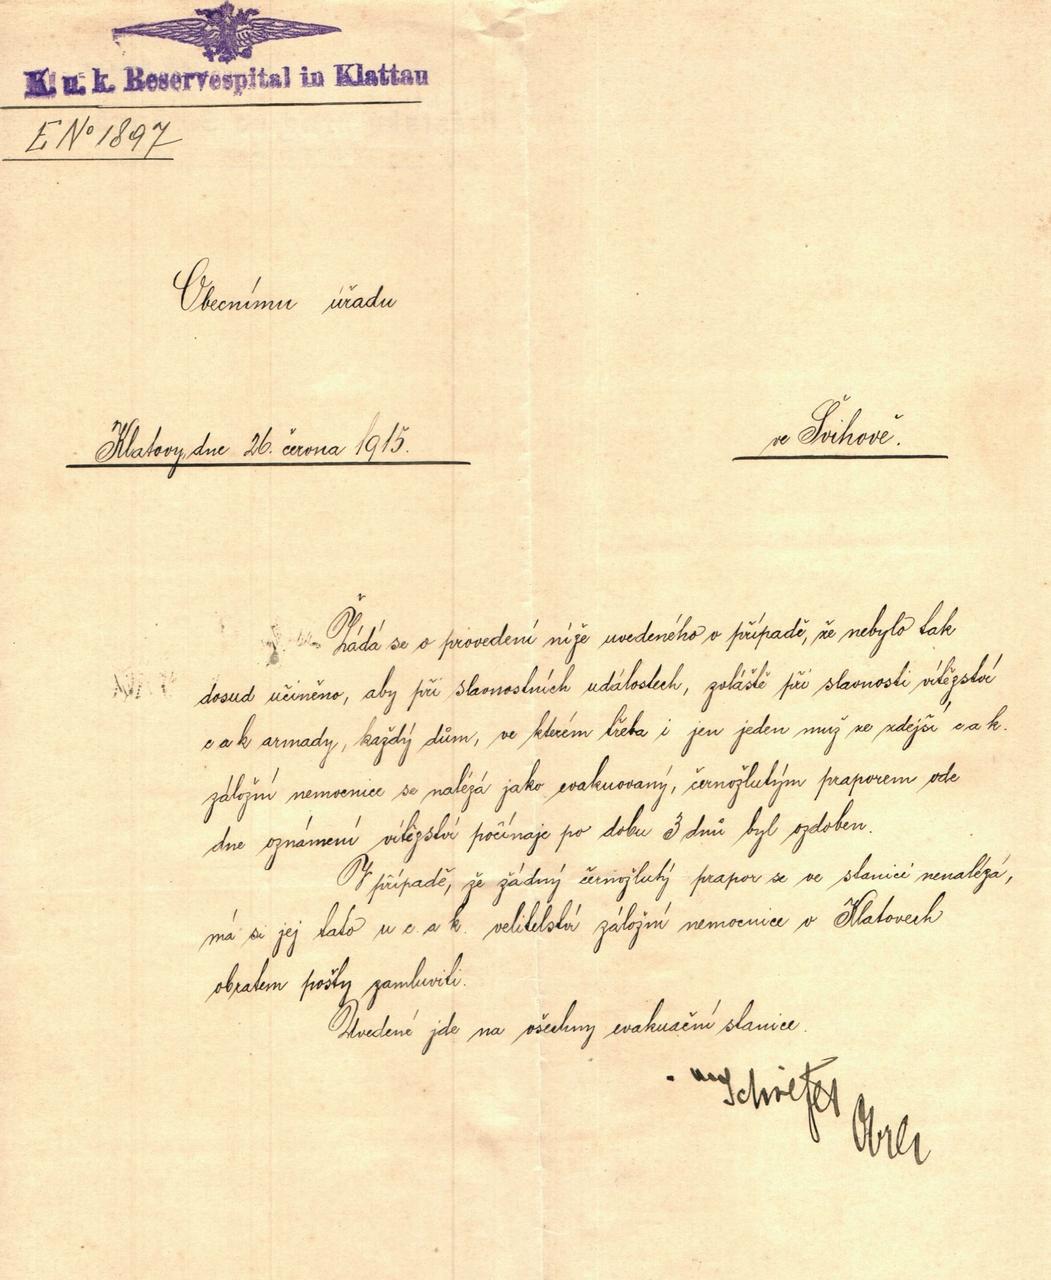 K. u. k. Reservespital in Klattau
E No 1897
Obecnímu úřadu
Klatovy, dne 26. června 1915.
ve Švihově.
Žádá se o provedení níže uvedeného v případě, že nebylo tak
dosud učiněno, aby při slavnostních událostech, zvláště při slavnosti vítězství
c a k armady, každý dům, ve kterém třeba i jen jeden muž ze zdejší c a k.
záložní nemocnice se nalézá jako evakuovaný, černožlutým praporem ode
dne oznámení vítězství počínaje po dobu 3 dnů byl ozdoben.
V případě, že žádný černožlutý prapor se ve stanici nenalézá,
má si jej tato u c. a k. velitelství záložní nemocnice v Klatovech
obratem pošty zamluviti.
Uvedené jde na všechny evakuační stanice.